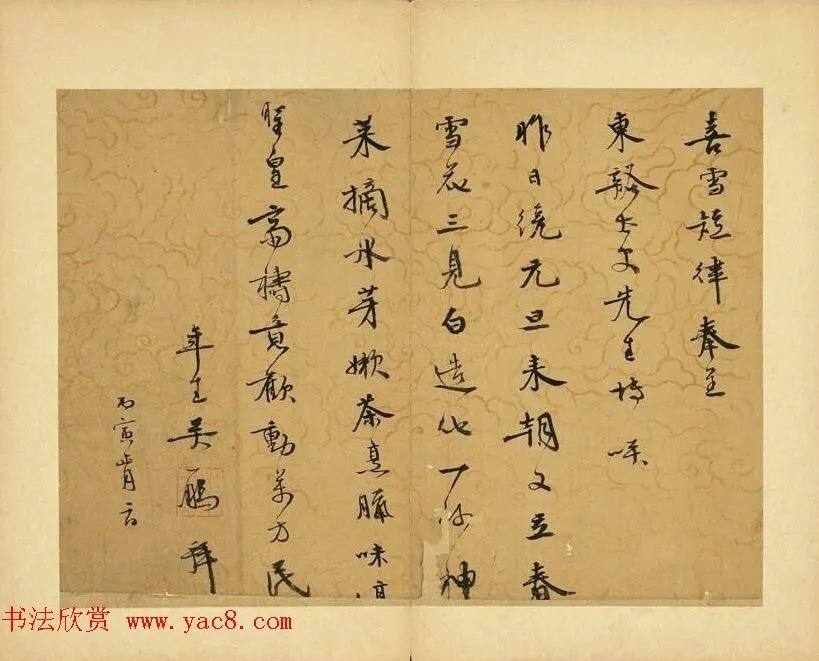 喜雪短律奉呈
東谿大丈先生博咲
昨日纔元旦来朝又立春
雪花三見白造化一何神
菜摘氷芽嫩茶烹臈味
聖皇齋禱歡動萬方民
年生吴鵬拜
丙寅正月二日
书法欣赏 www.yac8.com